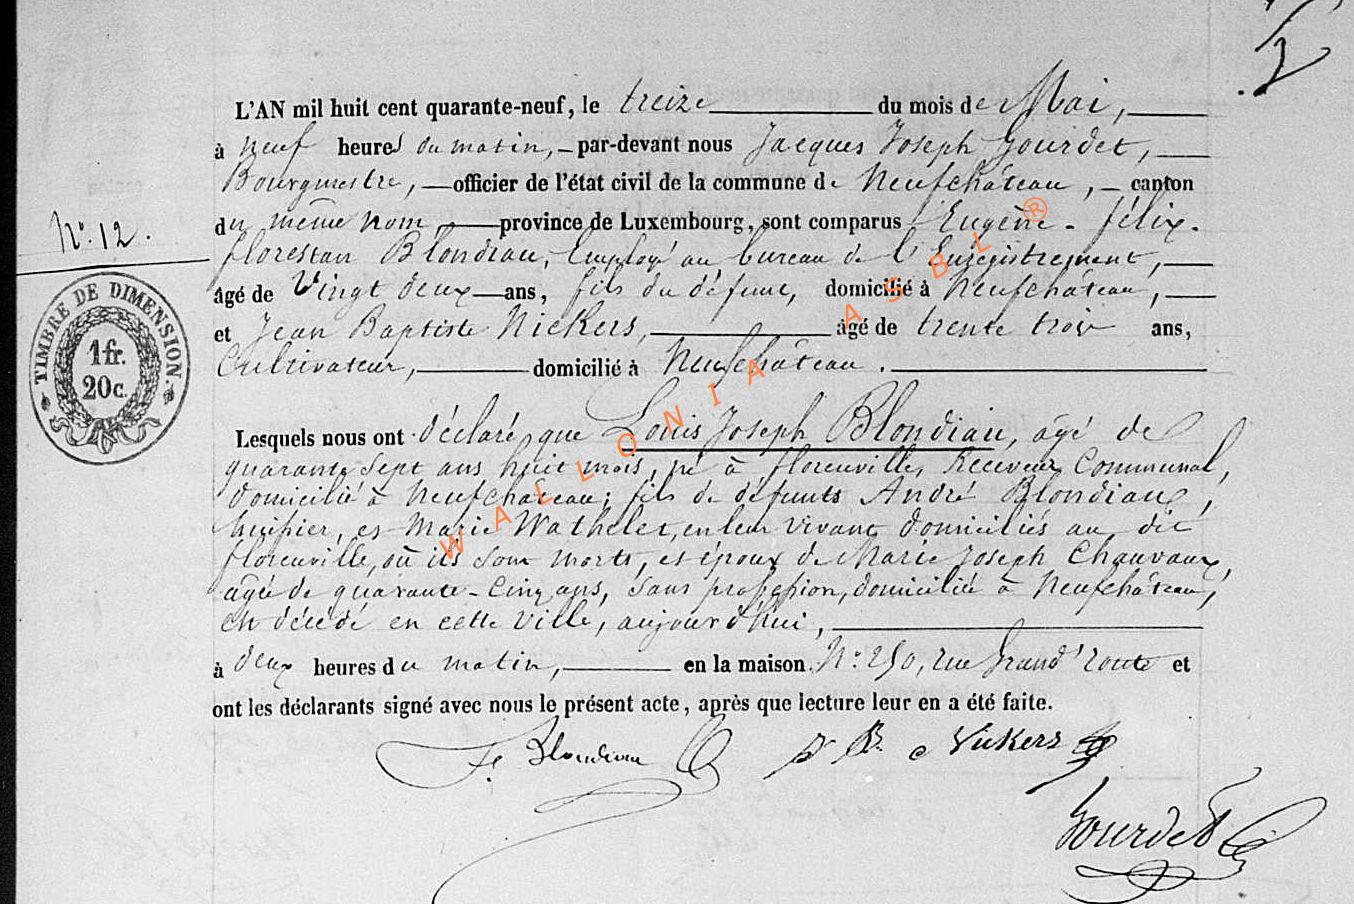 L'AN mil huit cent quarante-neuf, le treize du mois de Mai,
à neuf heures du matin, par-devant nous Jacques Joseph Gourdet,
Bourgmestre, officier de l'état civil de la commune de Neufchâteau, canton
du même nom, province de Luxembourg, sont comparus Eugène-Félix-
N.° 12.
florestan Blondiau, Employé au bureau de l'Enregistrement,
âgé de Vingt deux ans, fils du défunt, domicilié à Neufchâteau,
et Jean Baptiste Nickers, âgé de trente trois ans,
Cultivateur, domicilié à Neufchâteau.
TIMBRE DE DIMENSION.
1 fr.
20 c.
Lesquels nous ont déclaré, que Louis Joseph Blondiau, âgé de
quarante sept ans huit mois, né à florenville, Receveur Communal,
domicilié à Neufchâteau; fils de défunts André Blondiau,
huissier, et Marie Wathelet, en leur vivant domiciliés au dit
florenville, où ils sont morts, et époux de Marie Joseph Chauvaux,
âgée de quarante-cinq ans, sans profession, domiciliée à Neufchâteau,
est décédé en cette ville, aujourd'hui,
à deux heures du matin, en la maison N.° 250, rue Grand'route et
ont les déclarants signé avec nous le présent acte, après que lecture leur en a été faite.
Blondiau
J. B. Nickers
Gourdet
WALLONIA ASBL ®